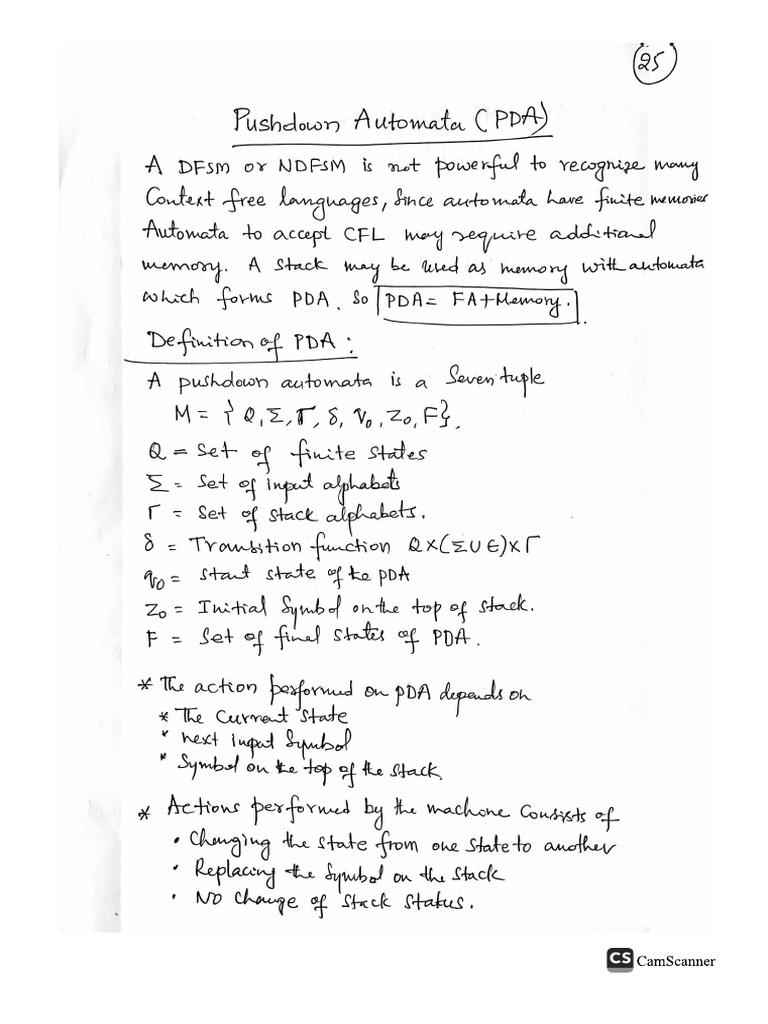 25
Pushdown Automata (PDA)
A DFSM or NDFSM is not powerful to recognize many
Context free languages, since automata have finite memories
Automata to accept CFL may require additional
memory. A stack may be used as memory with automata
which forms PDA. So PDA = FA+Memory.
Definition of PDA :
A pushdown automata is a Seven tuple
M = { Q, Σ, Γ, δ, q₀, Z₀, F}.
Q = Set of finite states
Σ = Set of input alphabets
Γ = Set of stack alphabets.
δ = Transition function Q×(Σ∪∈)×Γ
q₀ = Start state of the PDA
Z₀ = Initial Symbol on the top of stack.
F = Set of final states of PDA.
* The action performed on PDA depends on
* The Current state
* next input Symbol
* Symbol on the top of the stack.
* Actions performed by the machone Consists of
• Changing the state from one state to another
• Replacing the Symbol on the stack
• No change of stack status.
CS CamScanner